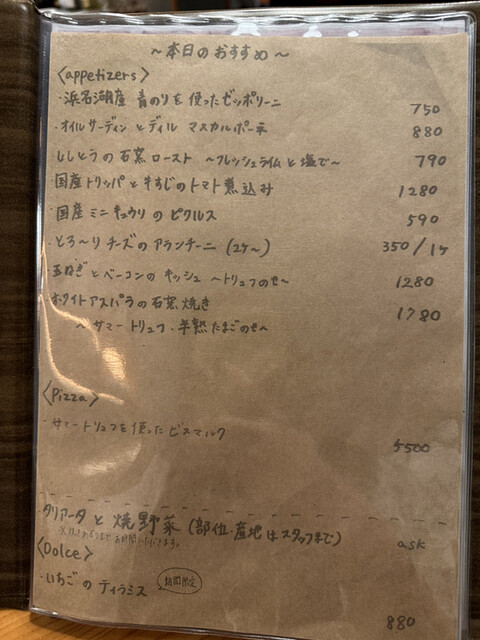 ～本日のおすすめ～
〈appetizers〉
・浜名湖産 青のりを使ったゼッポリーニ 750
・オイルサーディンとディル マスカルポーネ 880
ししとうの石窯ロースト ～フレッシュライムと塩で～ 790
・国産トリッパと牛すじのトマト煮込み 1280
・国産ミニキュウリのピクルス 590
・とろ～りチーズのアランチーニ (2ケ～) 350/1ケ
・玉ねぎとベーコンのキッシュ ～トリュフのせ～ 1280
・ホワイトアスパラの石窯焼き 1780
～サマートリュフ・半熟たまごのせ～
〈Pizza〉
・サマートリュフを使ったビスマルク 5500
タリアータと焼野菜 (部位・産地はスタッフまで) ask
お時間いただきます。
〈Dolce〉
・いちごのティラミス 期間限定 880